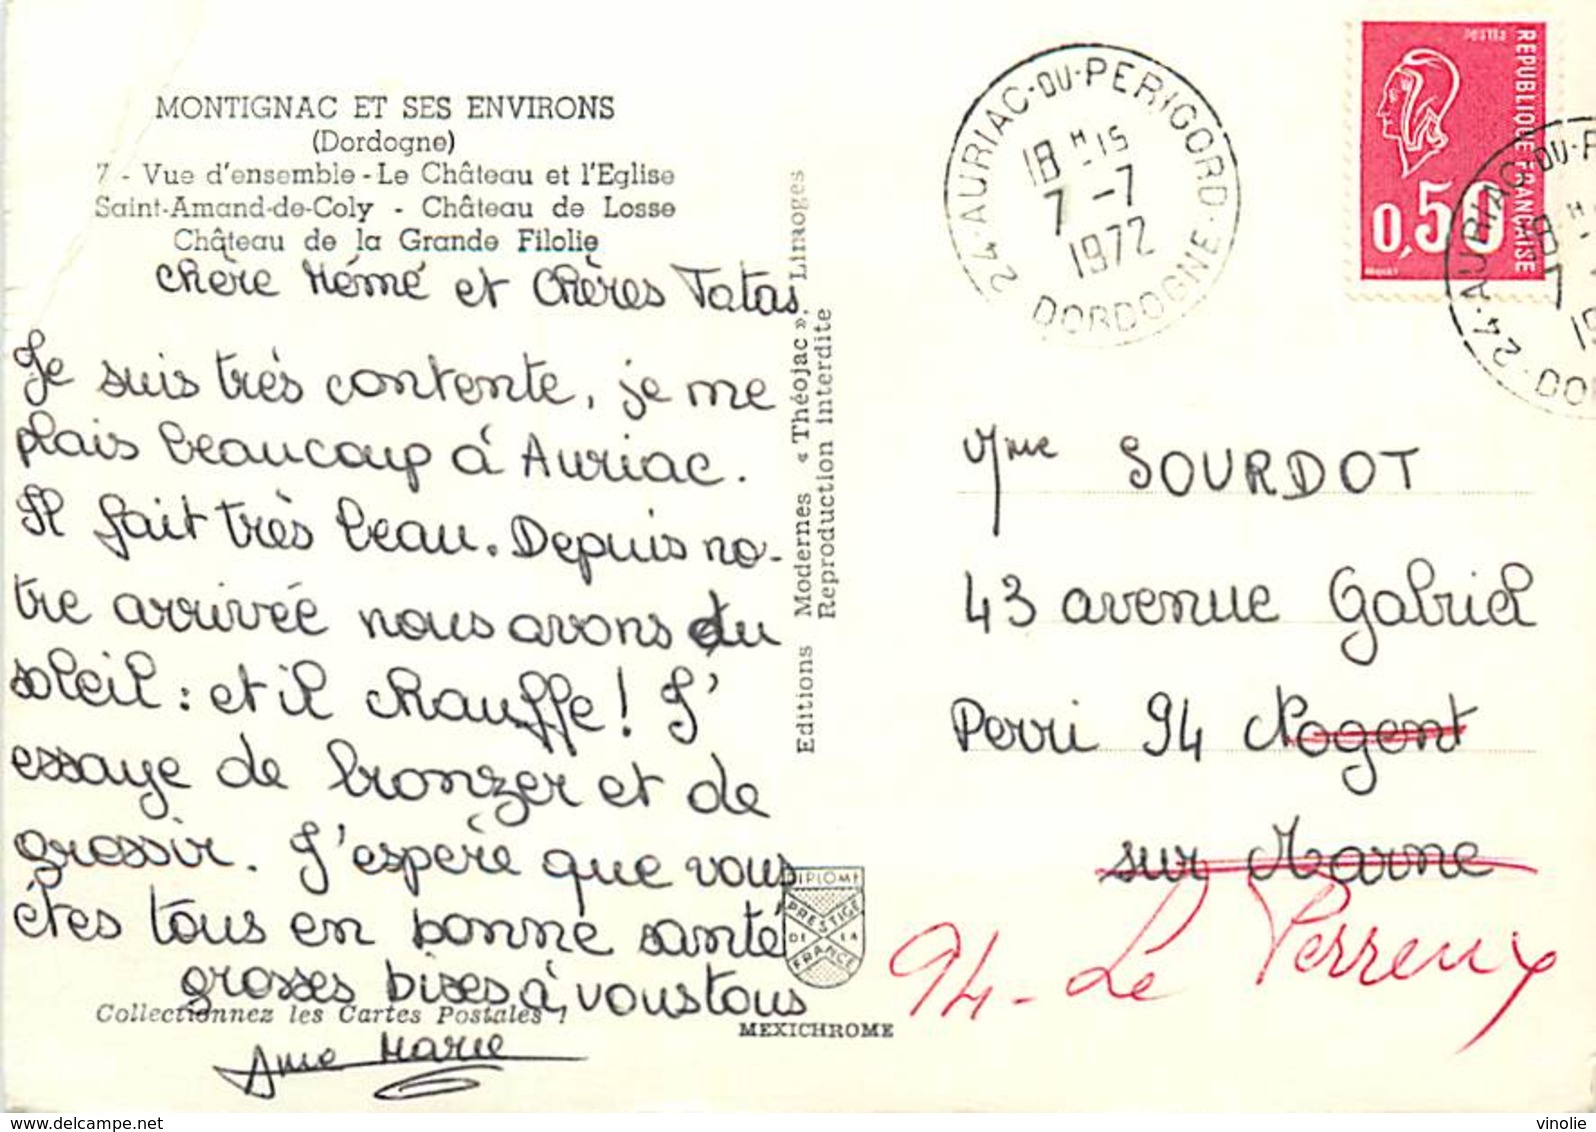 MONTIGNAC ET SES ENVIRONS
(Dordogne)
7 - Vue d'ensemble - Le Château et l'Eglise
Saint-Amand-de-Coly - Château de Losse
Château de la Grande Filolie
chère Mémé et Chères Tatas
Je suis très contente, je me
plais beaucoup à Auriac.
Il fait très beau. Depuis no-
tre arrivée nous avons du
soleil : et il chauffe ! J'
essaye de bronzer et de
grossir. J'espère que vous
êtes tous en bonne santé
grosses bises à vous tous
Collectionnez les Cartes Postales !
Anne Marie
Editions Modernes « Théojac », Limoges
Reproduction interdite
DIPLOME
PRESTIGE
DE LA
FRANCE
MEXICHROME
24 - AURIAC-DU-PERIGORD
18 H 15
7 -7
1972
DORDOGNE
REPUBLIQUE FRANÇAISE
0,50
24 - AURIAC-DU-P
18 H
7
19
DO
Mme SOURDOT
43 avenue Gabriel
Perri 94 Nogent
sur Marne
94 - Le Perreux
delcampe.net
vinolie